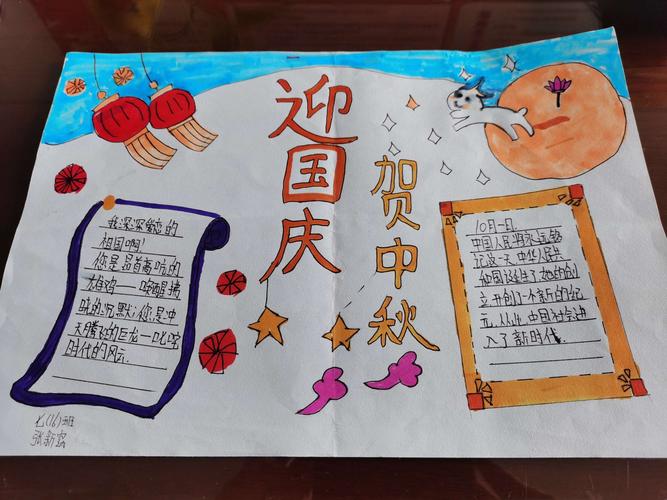 迎国庆
贺中秋
我深深爱恋的
祖国啊!
您是昂首高吭的
雄鸡—唤醒拂
晓的沉默,您是冲
天腾飞的巨龙—叱咤
时代的风云.
10月一日.
中国人民将永远铭
记这一天,中华人民共
和国诞生了,她的创
立开创了一个新的纪
元,从此,中国社会进
入了新时代.
七(16)班
张新